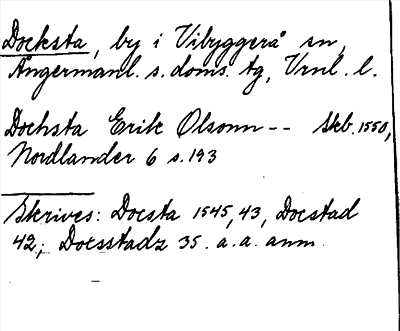 Docksta, by i Vibyggerå sn,
Ångermanl. s. doms. tg, Vrnl. l.
Dochsta Erik Olsonn -- Skb. 1550,
Nordlander 6 s. 193
Skrives: Docsta 1545, 43, Docstad
42; Docsstadz 35. a. a. anm.